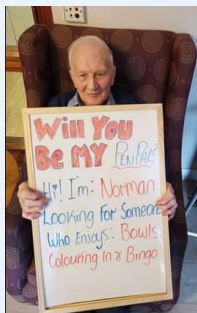 Will You
Be MY PenPal?
Hi! I'm: Norman
Looking For Someone
Who Enjoys: Bowls
Colouring In & Bingo